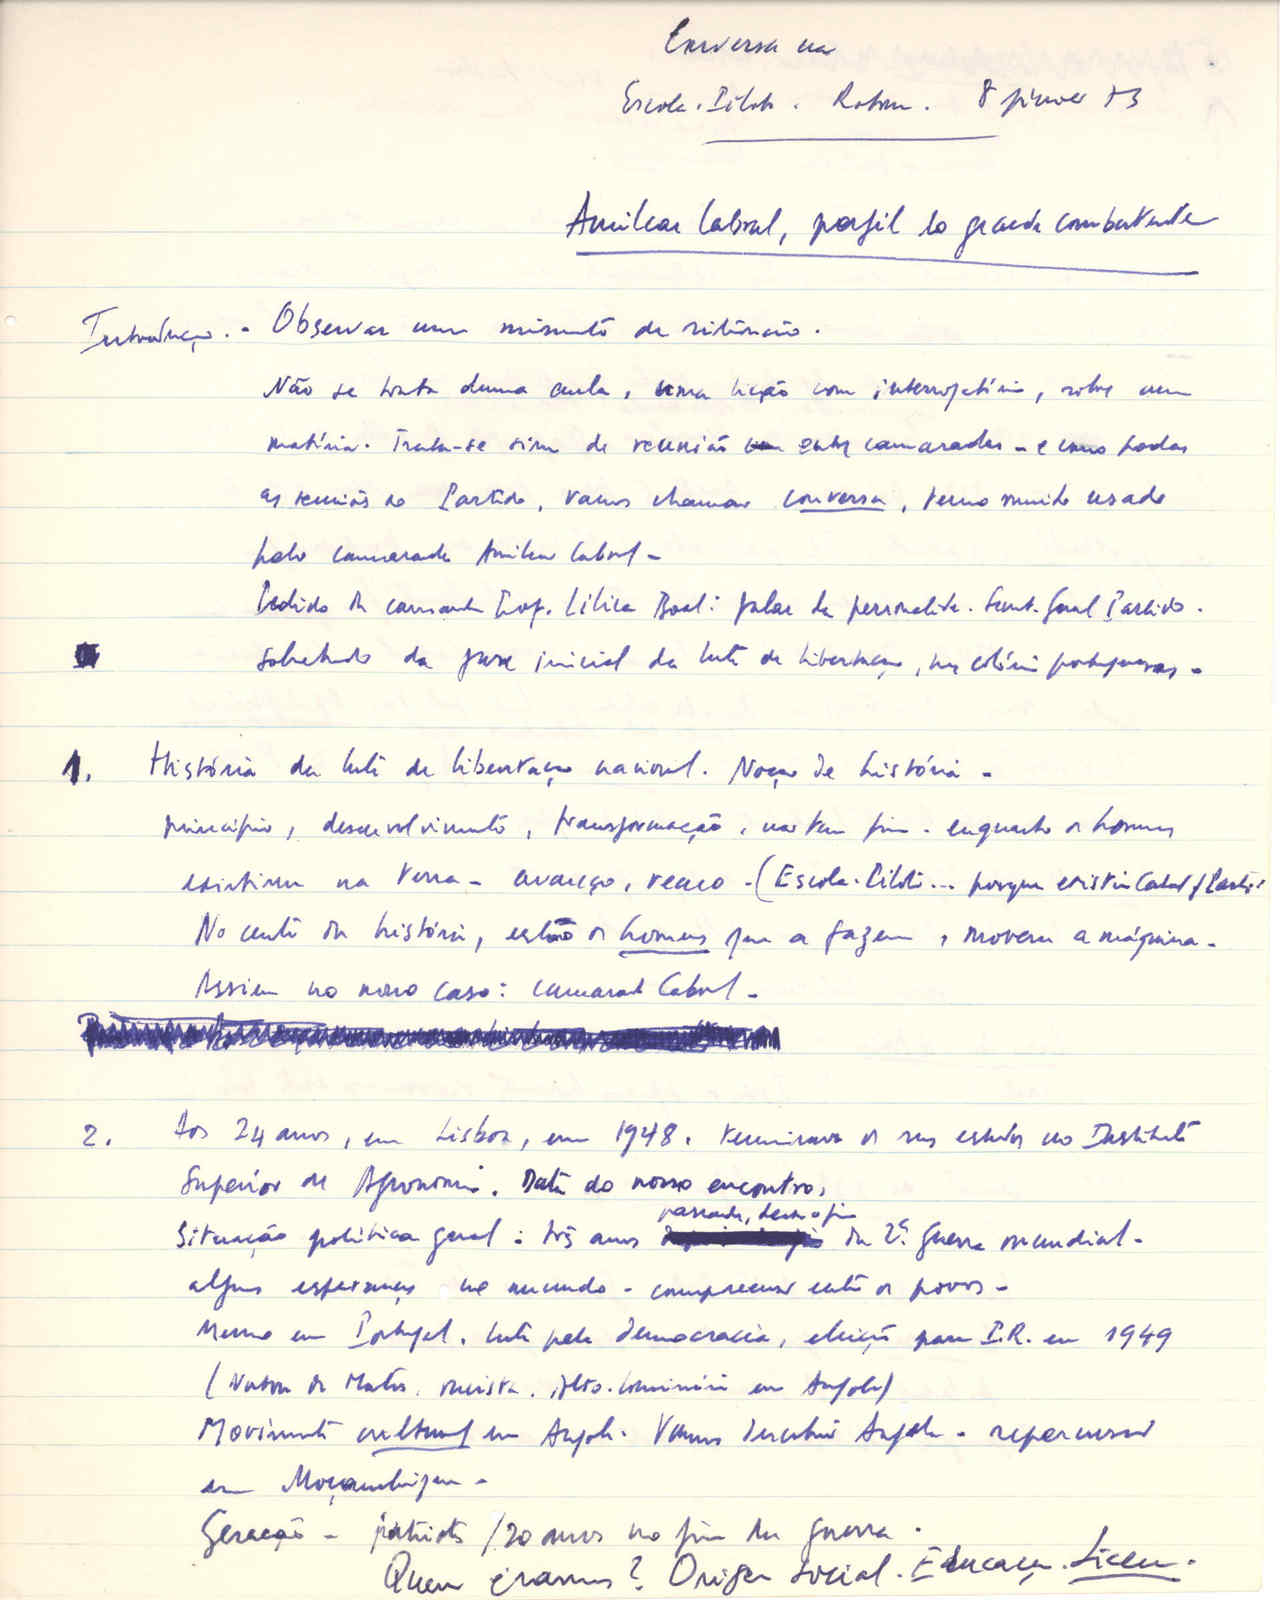 Conversa na
Escola-Piloto. Ratoma. 8 janeiro 73
Amílcar Cabral, perfil do grande combatente
Introdução. - Observar um minuto de silêncio.
Não se trata duma aula, uma lição com interrogatório, sobre uma
matéria. Trata-se sim de reunião entre camaradas - e como todas
as reuniões do Partido, vamos chamar conversa, termo muito usado
pelo camarada Amílcar Cabral -
Pedido da camarada Lilica Boal: falar da personalidade. Secret. Geral Partido.
Sobretudo da fase inicial da luta de libertação, nas colónias portuguesas -
1. História da luta de libertação nacional. Noção de história -
princípio, desenvolvimento, transformação, não tem fim - enquanto os homens
existirem na terra - avanço, recuo - (Escola-Piloto... porque existiu Cabral
No centro da história, estão os homens que a fazem, movem a máquina -
Assim no nosso caso: camarada Cabral -
2. Aos 24 anos, em Lisboa, em 1948. Terminava os seus estudos no Instituto
Superior de Agronomia. Data do nosso encontro,
passados, desde o fim
Situação política geral: três anos da 2ª guerra mundial -
algumas esperanças no mundo - compreensão entre os povos -
Mesmo em Portugal. Luta pela democracia, eleição para P.R. em 1949
(Norton de Matos, Alto-Comissário em Angola)
Movimento cultural em Angola. Vamos descobrir Angola - repercussão
em Moçambique -
Geração - 20 anos no fim da guerra.
Quem éramos? Origem social. Educação. Liceu.